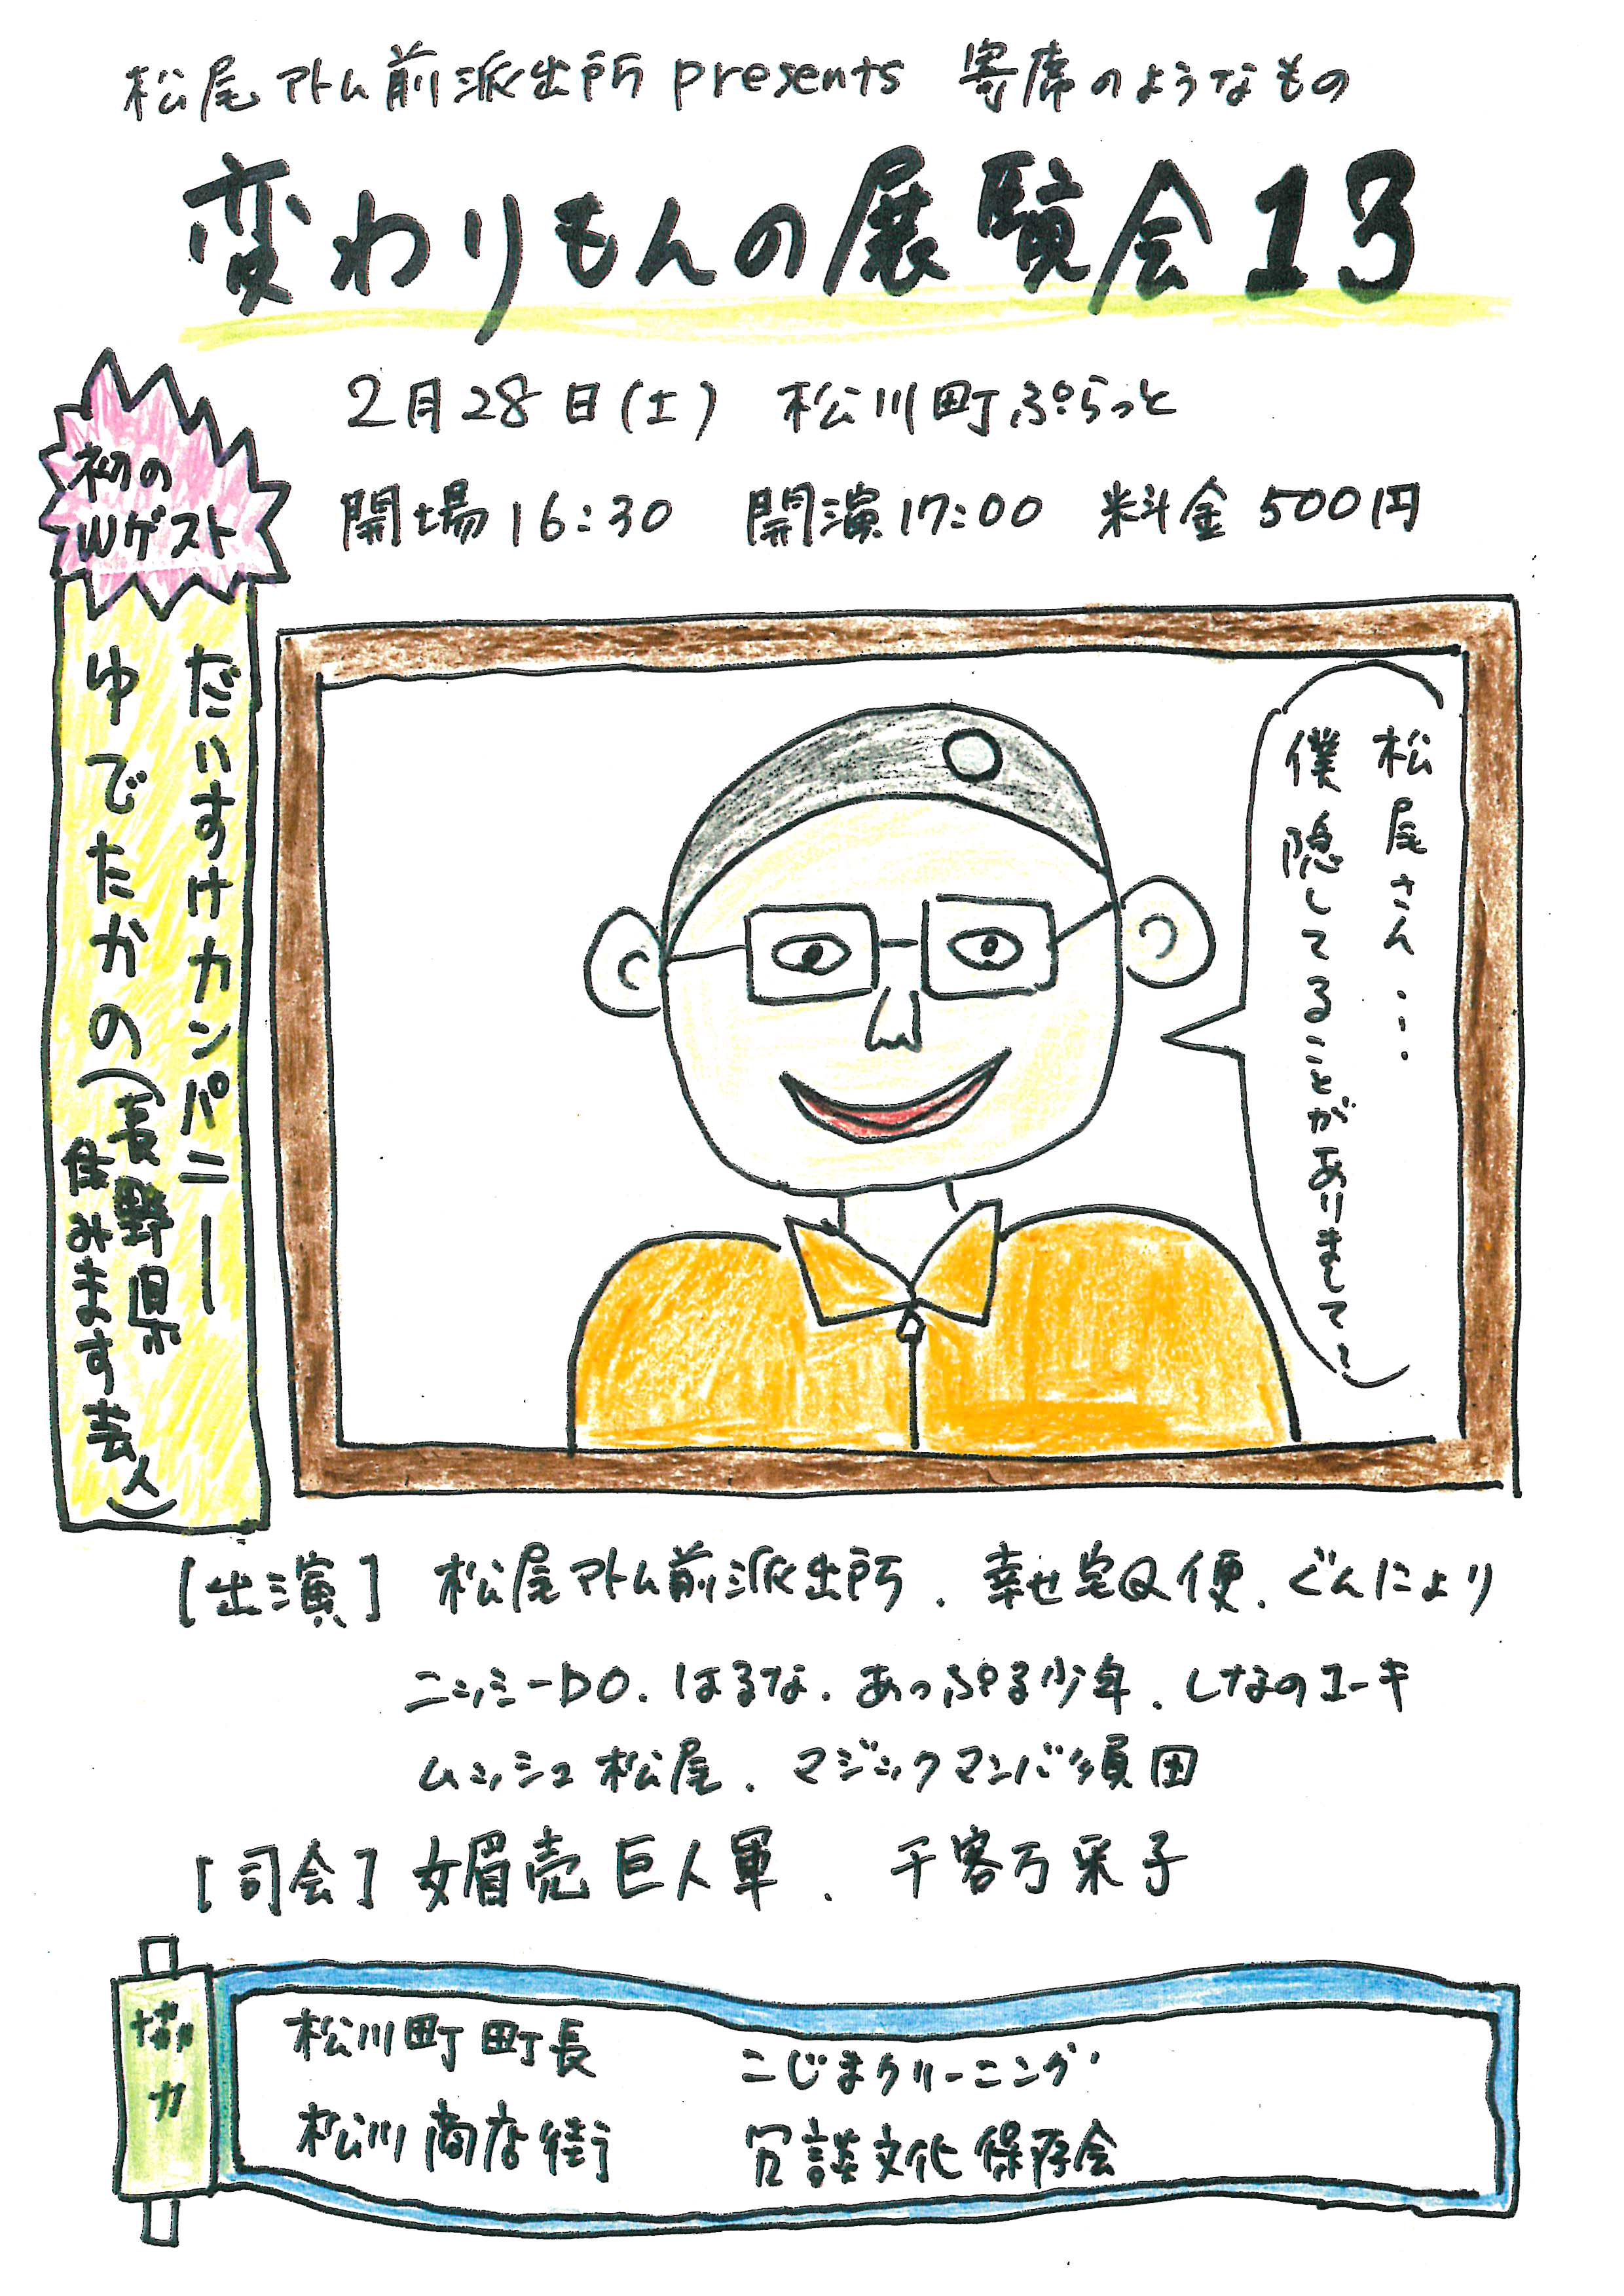 松尾アトム前派出所 presents 寄席のようなもの
変わりもんの展覧会13
2月28日(土) 松川町ぷらっと
開場16:30 開演17:00 料金500円
初の
Wゲスト
だいすけカンパニー
ゆでたかの(長野県
住みます芸人)
松尾さん・・・
僕隠してることがありまして〜
[出演] 松尾アトム前派出所. 幸せ宅Q便. ぐんにょり
ニッシーDO. はるな. あっぷる少年. しなのユーキ
ムッシュ松尾. マジックマンバ須田
[司会] 女媚売巨人軍. 千客万采子
協力
松川町町長
松川商店街
こじまクリーニング
冗談文化保存会